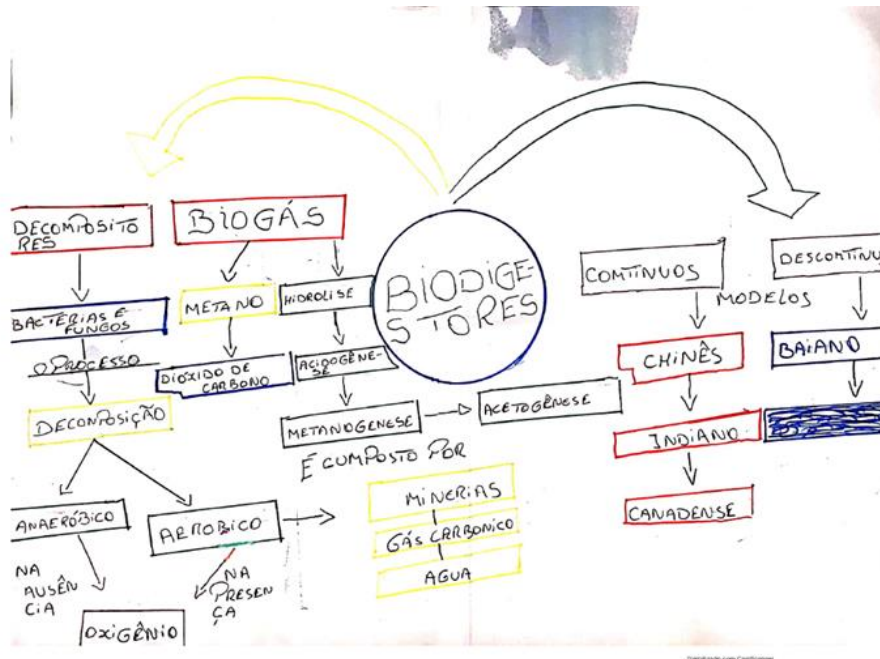 BIODIGE-
STORES
DECOMPOSITO
RES
BACTÉRIAS E
FUNGOS
O PROCESSO
DECOMPOSIÇÃO
ANAERÓBICO
AEROBICO
NA
AUSÊN
CIA
NA
PRESEN
ÇA
OXIGÊNIO
BIOGÁS
METANO
DIOXIDO DE
CARBONO
HIDROLISE
ACIDOGÊNE-
SE
METANOGENESE
ACETOGÊNESE
É COMPOSTO POR
MINERIAS
GÁS CARBONICO
AGUA
CONTINUOS
MODELOS
CHINÊS
INDIANO
CANADENSE
DESCONTINU
BAIANO